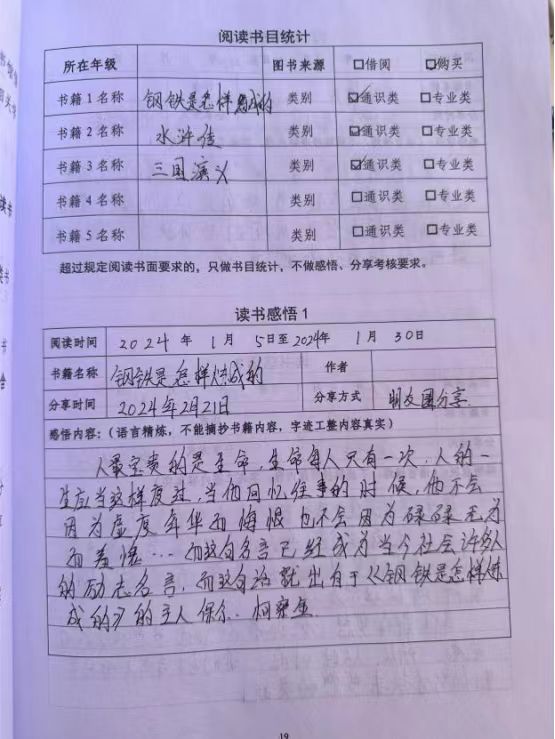 阅读书目统计
所在年级 图书来源 □借阅 ☑购买
书籍1名称 钢铁是怎样炼成的 类别 ☑通识类 □专业类
书籍2名称 水浒传 类别 ☑通识类 □专业类
书籍3名称 三国演义 类别 ☑通识类 □专业类
书籍4名称 类别 □通识类 □专业类
书籍5名称 类别 □通识类 □专业类
超过规定阅读书面要求的，只做书目统计，不做感悟、分享考核要求。
读书感悟1
阅读时间 2024年 1月 5日至2024年 1月 30日
书籍名称 钢铁是怎样炼成的 作者
分享时间 2024年2月21日 分享方式 朋友圈分享
感悟内容：（语言精炼，不能摘抄书籍内容，字迹工整内容真实）
人最宝贵的是生命，生命每人只有一次，人的一
生应当这样度过，当他回忆往事的时候，他不会
因为虚度年华而悔恨也不会因为碌碌无为
而羞愧…而这句名言已经成为当今社会许多人
的励志名言，而这句话就出自于《钢铁是怎样炼
成的》的主人保尔·柯察金
19